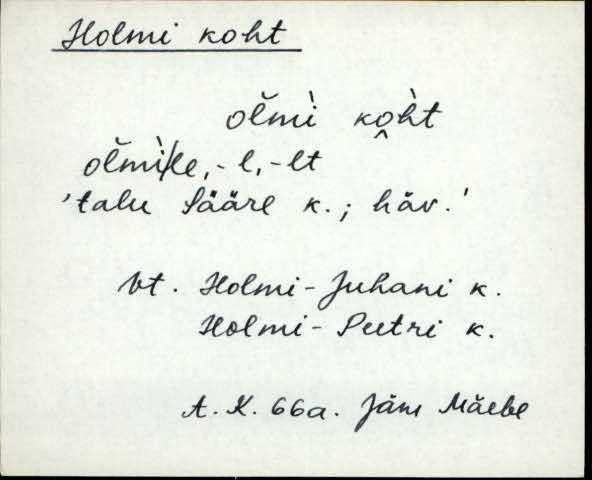 Holmi koht
olmì kòht
olmìl̀e, -l, -lt
'talu Sääre k.; häv.'
Vt. Holmi-Juhani k.
Holmi-Peetri k.
A. K. 66a. Jäm Mäebe